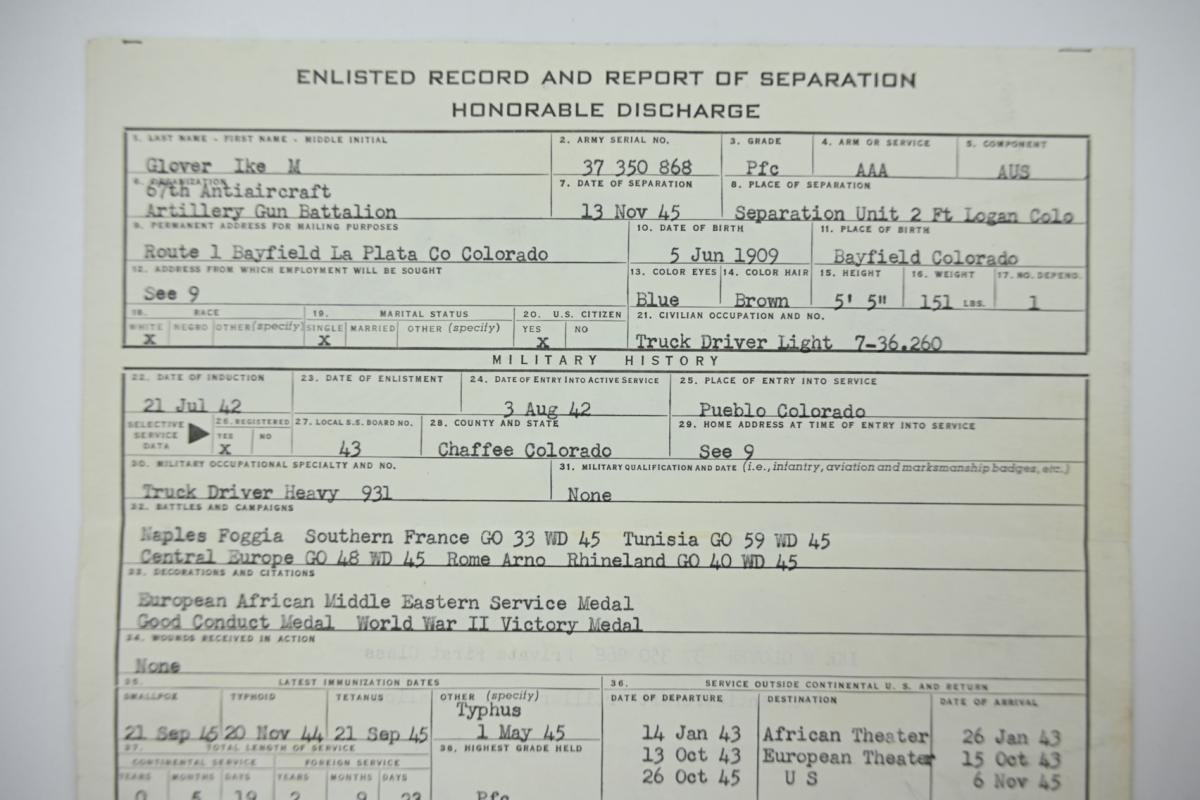 ENLISTED RECORD AND REPORT OF SEPARATION
HONORABLE DISCHARGE
1. LAST NAME - FIRST NAME - MIDDLE INITIAL
Glover Ike M
2. ARMY SERIAL NO.
37 350 868
3. GRADE
Pfc
4. ARM OR SERVICE
AAA
5. COMPONENT
AUS
6. ORGANIZATION
67th Antiaircraft
Artillery Gun Battalion
7. DATE OF SEPARATION
13 Nov 45
8. PLACE OF SEPARATION
Separation Unit 2 Ft Logan Colo
9. PERMANENT ADDRESS FOR MAILING PURPOSES
Route 1 Bayfield La Plata Co Colorado
10. DATE OF BIRTH
5 Jun 1909
11. PLACE OF BIRTH
Bayfield Colorado
12. ADDRESS FROM WHICH EMPLOYMENT WILL BE SOUGHT
See 9
13. COLOR EYES
Blue
14. COLOR HAIR
Brown
15. HEIGHT
5' 5"
16. WEIGHT
151 LBS.
17. NO. DEPEND.
1
18. RACE
WHITE NEGRO OTHER (specify)
X
19. MARITAL STATUS
SINGLE MARRIED OTHER (specify)
X
20. U.S. CITIZEN
YES NO
X
21. CIVILIAN OCCUPATION AND NO.
Truck Driver Light 7-36.260
MILITARY HISTORY
22. DATE OF INDUCTION
21 Jul 42
23. DATE OF ENLISTMENT
24. DATE OF ENTRY INTO ACTIVE SERVICE
3 Aug 42
25. PLACE OF ENTRY INTO SERVICE
Pueblo Colorado
SELECTIVE
SERVICE
DATA
26. REGISTERED
YES NO
X
27. LOCAL S.S. BOARD NO.
43
28. COUNTY AND STATE
Chaffee Colorado
29. HOME ADDRESS AT TIME OF ENTRY INTO SERVICE
See 9
30. MILITARY OCCUPATIONAL SPECIALTY AND NO.
Truck Driver Heavy 931
31. MILITARY QUALIFICATION AND DATE (i.e., infantry, aviation and marksmanship badges, etc.)
None
32. BATTLES AND CAMPAIGNS
Naples Foggia Southern France GO 33 WD 45 Tunisia GO 59 WD 45
Central Europe GO 48 WD 45 Rome Arno Rhineland GO 40 WD 45
33. DECORATIONS AND CITATIONS
European African Middle Eastern Service Medal
Good Conduct Medal World War II Victory Medal
34. WOUNDS RECEIVED IN ACTION
None
35. LATEST IMMUNIZATION DATES
SMALLPOX
21 Sep 45
TYPHOID
20 Nov 44
TETANUS
21 Sep 45
OTHER (specify)
Typhus
1 May 45
36. SERVICE OUTSIDE CONTINENTAL U. S. AND RETURN
DATE OF DEPARTURE DESTINATION DATE OF ARRIVAL
14 Jan 43 African Theater 26 Jan 43
13 Oct 43 European Theater 15 Oct 43
26 Oct 45 U S 6 Nov 45
37. TOTAL LENGTH OF SERVICE
CONTINENTAL SERVICE FOREIGN SERVICE
YEARS MONTHS DAYS YEARS MONTHS DAYS
0 5 19 2 9 23
38. HIGHEST GRADE HELD
Pfc